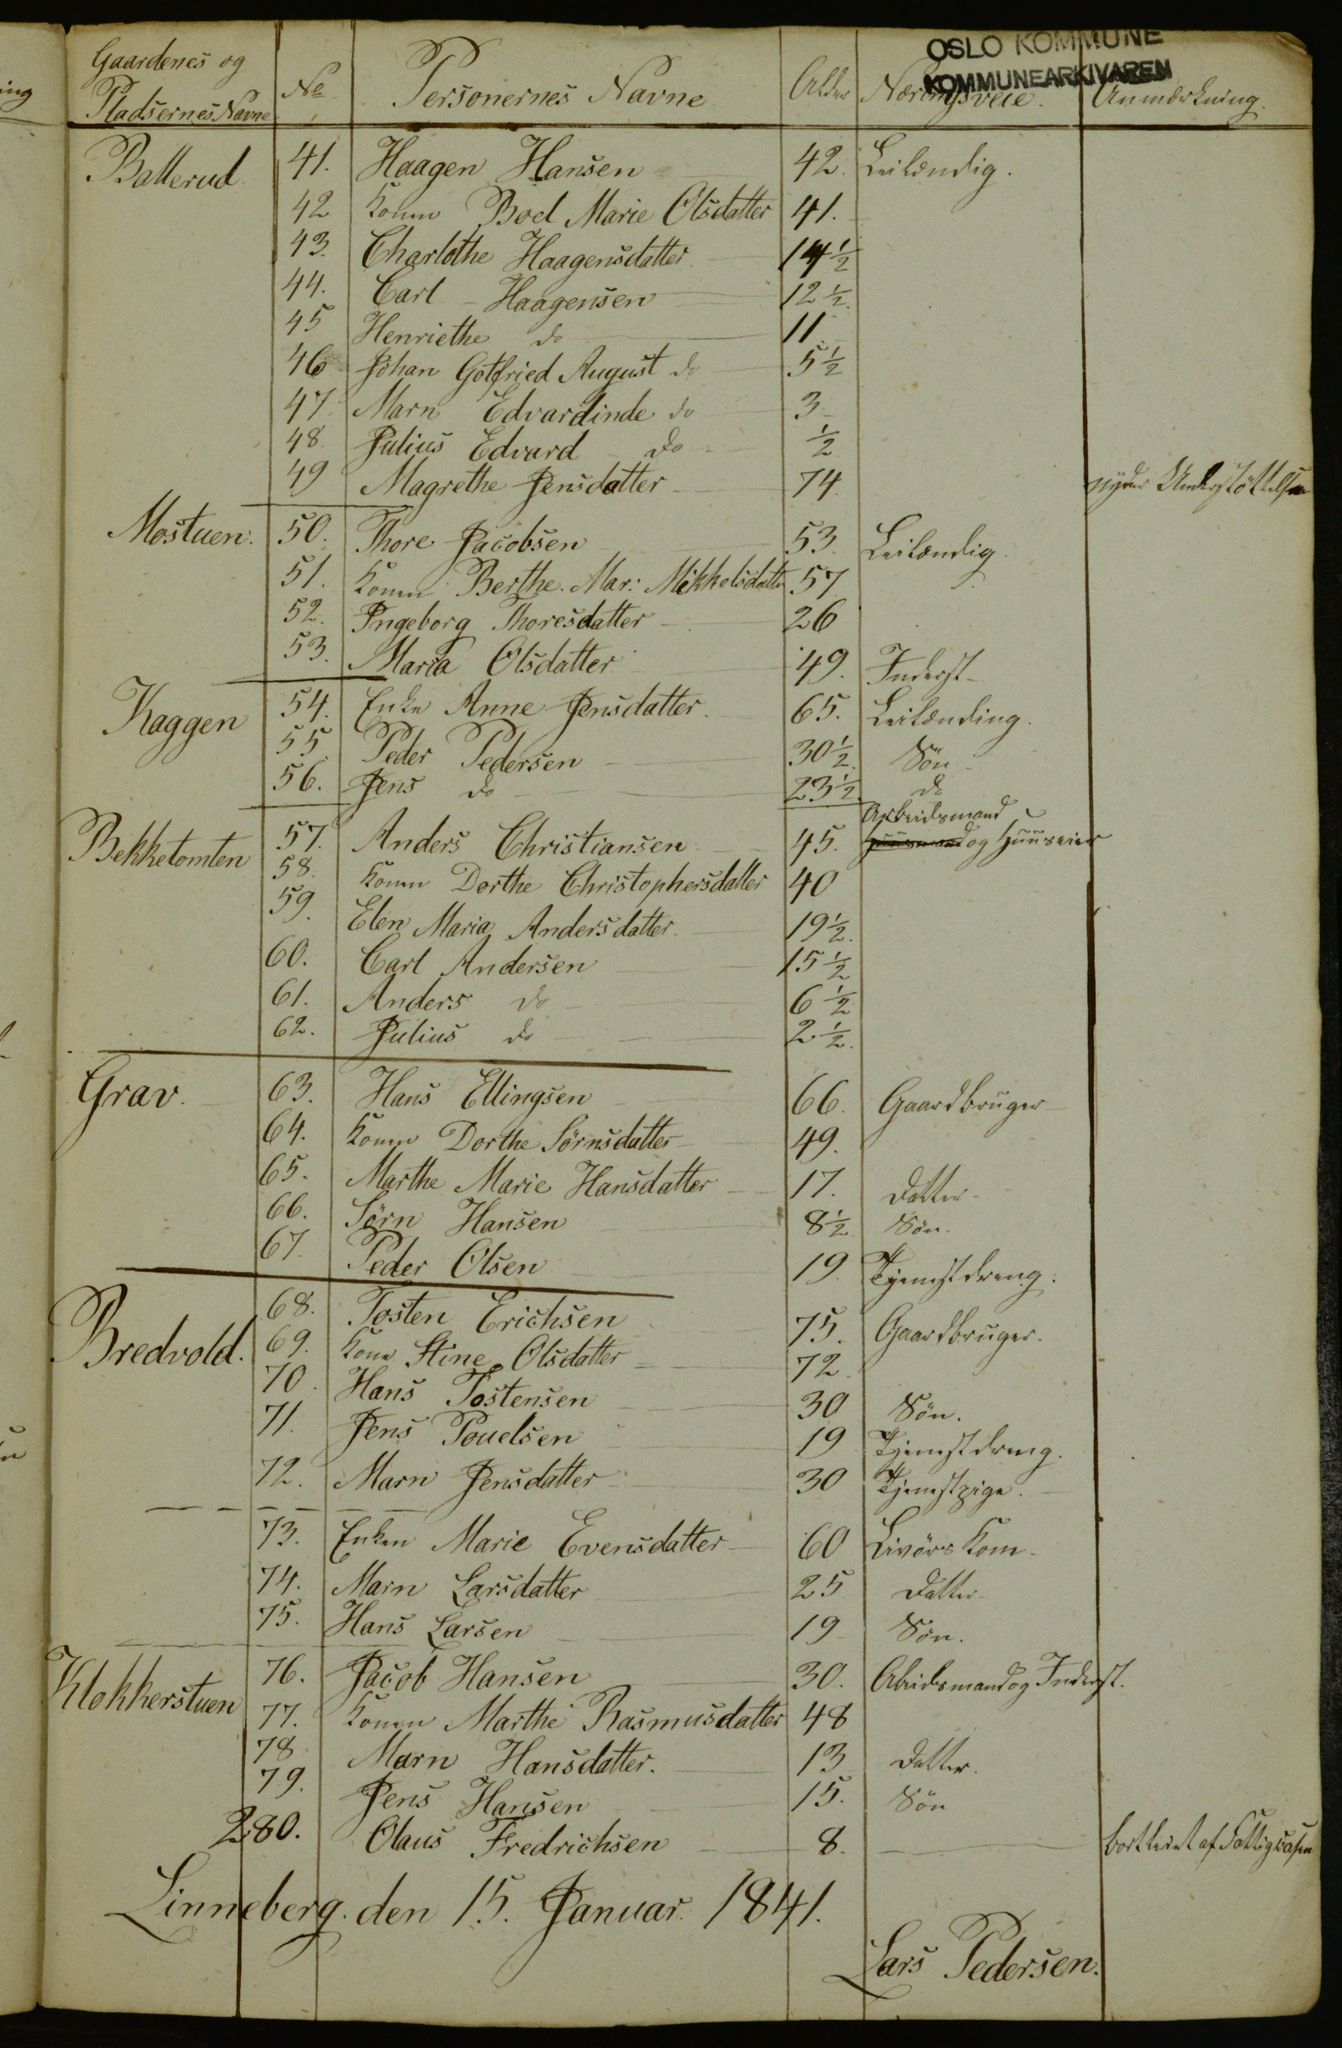 OSLO KOMMUNE
KOMMUNEARKIVAREN
Gaardenes og Pladsernes Navne No Personernes Navne Alder Næringsveie. Anmærkning.
Batterud 41. Haagen Hansen 42. Leilændig.
42 Konen Boel Marie Olsdatter 41.
43. Charlothe Haagensdatter 14 1/2
44. Carl Haagensen 12 1/2.
45 Henriethe do 11
46 Johan Gotfried August do 5 1/2
47 Marn Edvardinde do 3
48 Julius Edvard do 1/2
49 Magrethe Jensdatter 74 nyder Understøttelse
Mostuen. 50. Thore Jacobsen 53. Leilændig.
51. Konen Berthe Mar: Mikkelsdatter 57
52. Ingeborg Thoresdatter 26
53. Maria Olsdatter 49. Inderst
Kaggen 54. Enke Anne Jensdatter. 65. Leilænding.
55 Peder Pedersen 30 1/2. Søn
56. Jens do 23 1/2. do
Bekketomten 57. Anders Christiansen 45. Arbeidsmand og Huuseier
58. Konen Dorthe Christophersdatter 40
59. Elen Maria Andersdatter 19 1/2.
60. Carl Andersen 15 1/2
61. Anders do 6 1/2
62. Julius do 2 1/2.
Grav. 63. Hans Ellingsen 66. Gaardbruger
64. Konen Dorthe Sørnsdatter 49.
65. Marthe Marie Hansdatter 17. Datter
66. Sørn Hansen 8 1/2 Søn.
67. Peder Olsen 19 Tjenestdreng.
Bredvold. 68. Tosten Erichsen 75. Gaardbruger.
69. Kone Stine Olsdatter 72.
70. Hans Tostensen 30 Søn.
71. Jens Pouelsen 19 Tjenestdreng.
72. Marn Jensdatter 30 Tjenestpige.
73. Enken Marie Evensdatter 60 Livørs Kone
74. Marn Larsdatter 25 Datter
75. Hans Larsen 19 Søn.
Klokkerstuen 76. Jacob Hansen 30. Abeidsmand og Inderst.
77. Konen Marthe Rasmusdatter 48
78 Marn Hansdatter. 13 Datter.
79. Jens Hansen 15. Søn
280. Olaus Fredrichsen 8. bortleiet af Fattigcassen
Linneberg. den 15. Januar. 1841.
Lars Pedersen.